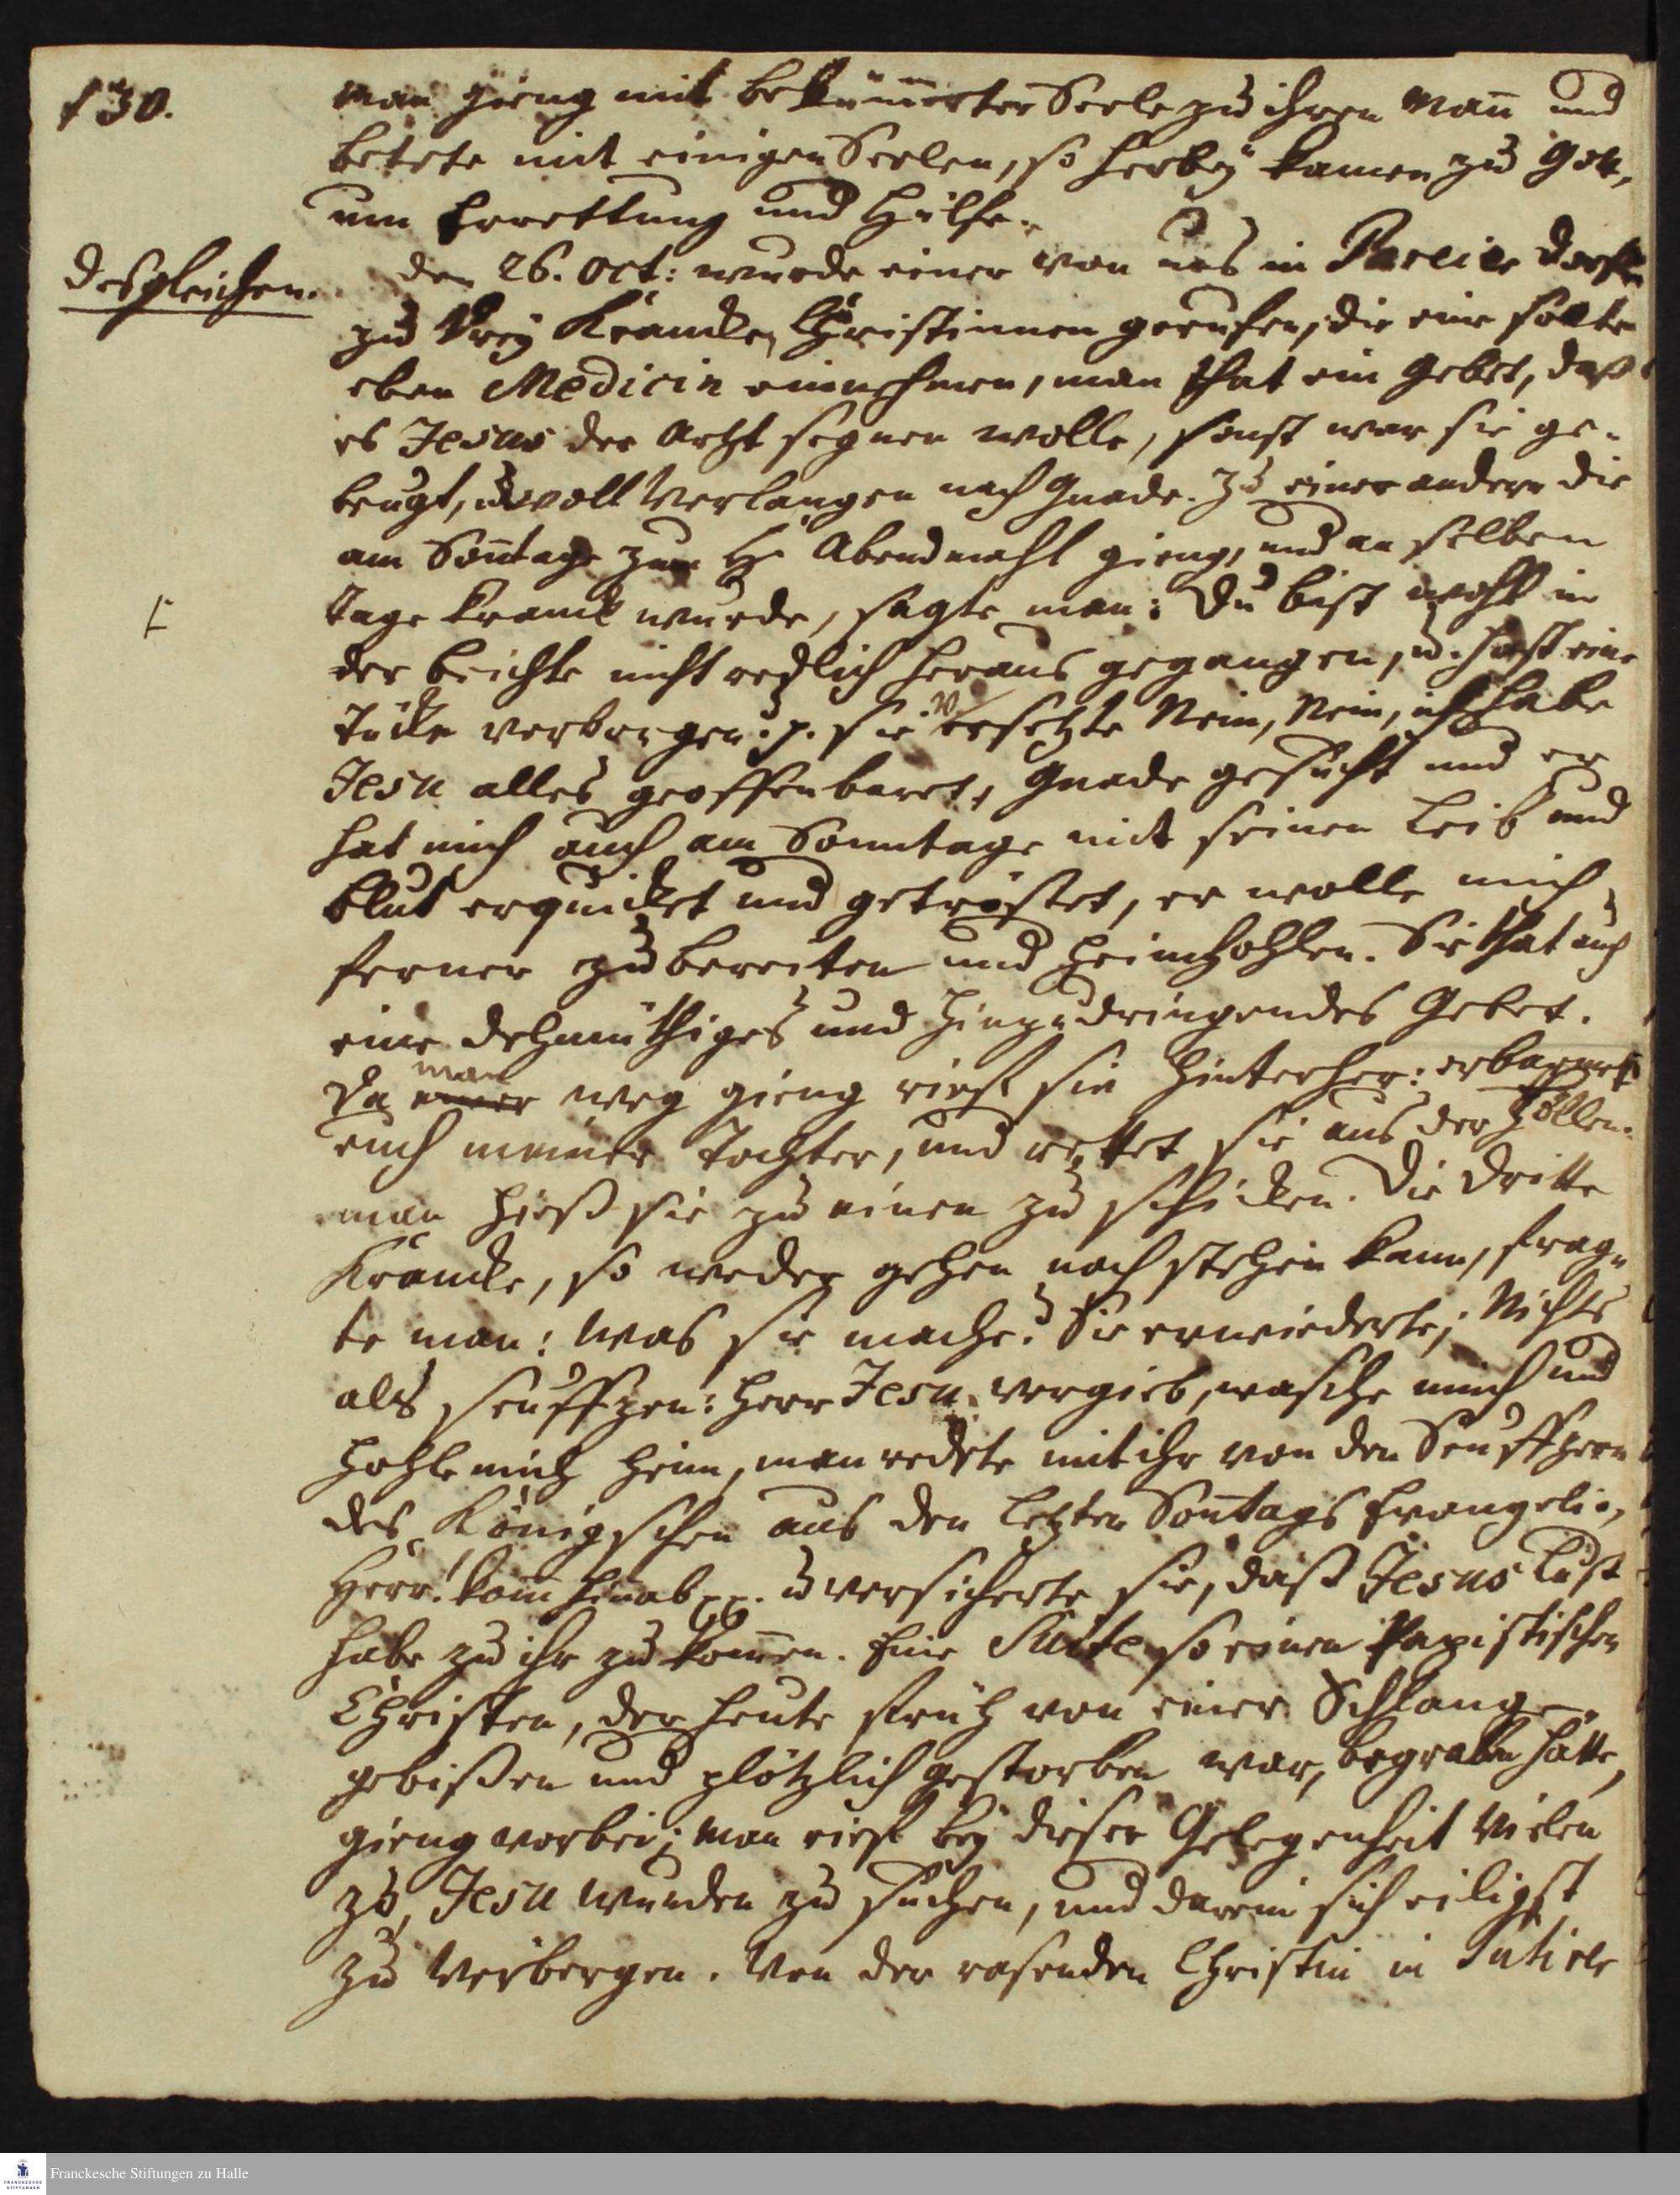 130.
man gieng mit bekümerter Seele zu ihren Mañ und
betete mit einigen Seelen, so herbeÿ kamen zu Gott,
um Errettung und Hülfe.
Desgleichen.
den 26. Oct: wurde einer von uns in Pareier Dorfe
zu dreÿ Krancken Christinnen gerufen, die eine sollte
eben Medicin einnehmen, man that ein Gebet, daß
es Jesus der Artzt segnen wolle, sonst war sie ge-
beugt, u. voll Verlangen nach Gnade. Zu einer andern die
am Soñtage zum H. Abendmahl gieng, und an selben
Tage kranck wurde, sagte man: Du bist wohl in
der beichte nicht redlich heraus gegangen, u. hast eine
Tücke verborgen. p. sie versetzte Nein, Nein, ich habe
Jesu alles geoffenbaret, Gnade gesucht und er
hat mich auch am Sonntage mit seinen Leib und
blut erquicket und getröstet, er wolle mich
ferner zubereiten und heimhohlen. Sie that auch
eine dehmüthiges und hinzudringendes Gebet.
Da man weg gieng rief sie hinterher: erbarmet
euch meiner Tochter, und rettet sie aus der Höllen.
man hieß sie zu einen zu schicken. Die dritte
Krancke, so weder gehen noch stehen kann, frag-
te man: was sie mache? Sie erwiederte; Nichts
als seuffzen: Herr Jesu vergieb, wasche mich und
hohle mich heim, man redete mit ihr von den Seuffzern
des Königschen aus den letzten Soñtags Evangelio,
Herr! kom̃ hinab pp. u versicherte sie, daß Jesus Lust
habe zu ihr zu kom̃en. Eine Suite so einen Papistischen
Christen, der heute früh von einer Schlange
gebißen und plötzlich gestorben war, begraben hatte,
gieng vorbei; man rief beÿ dieser Gelegenheit vielen
zu, Jesu Wunden zu suchen, und darein sich eiligst
zu verbergen. Von der rasenden Christin in
Franckesche Stiftungen zu Halle
FRANCKESCHE
STIFTUNGEN